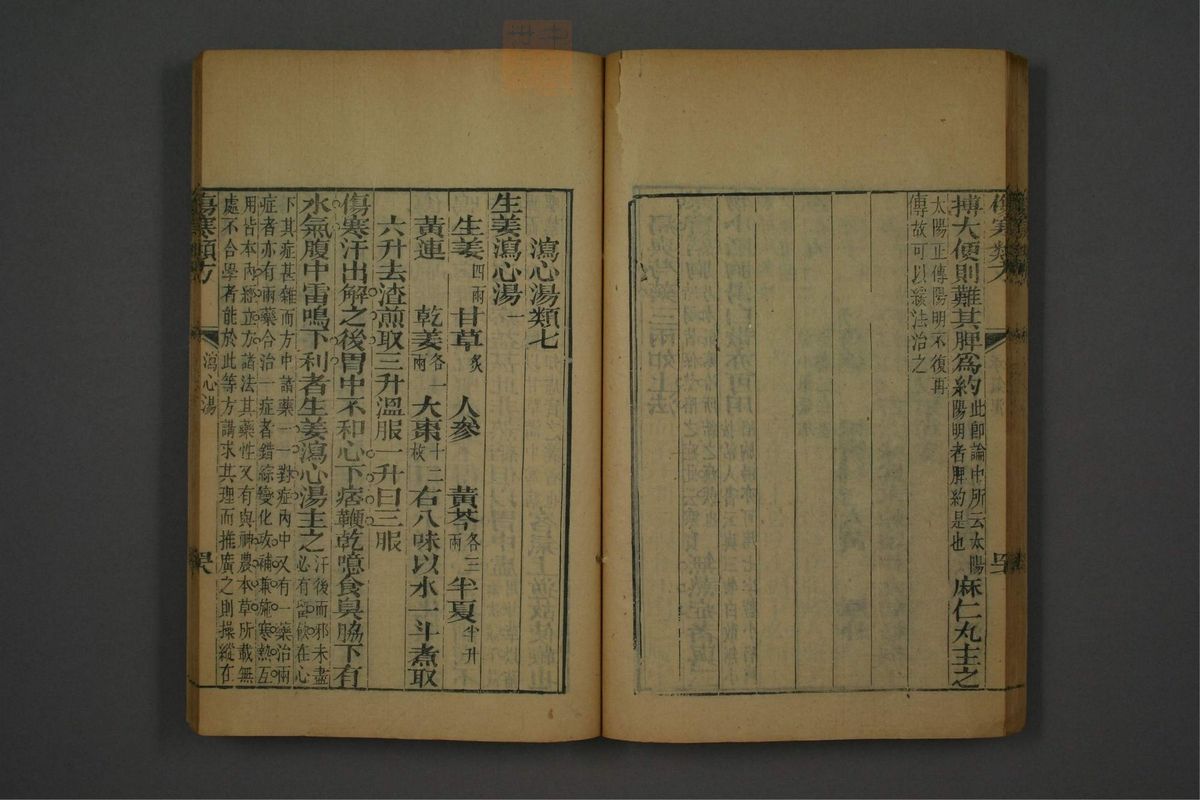 傷寒類方
搏大便則難其脾爲約此卽論中所云太陽陽明者脾約是也麻仁丸主之
太陽正傳陽明不復再
傳故可以緩法治之
瀉心湯類七
生姜瀉心湯一
生姜四兩 甘草炙 人參 黃芩各三兩 半夏半升
黃連 乾姜各一兩 大棗十二枚 右八味以水一斗煮取
六升去渣煎取三升溫服一升日三服
傷寒汗出解之後胃中不和心下痞鞕乾噫食臭脇下有
水氣腹中雷鳴下利者生姜瀉心湯主之汗後而邪未盡必有留飲在心
下其症甚雜而方中諸藥一一對症內中又有一藥治兩
症者亦有兩藥合治一症者錯綜變化攻補兼施寒熱互
用皆本內經立方諸法其藥性又有與神農本草所載無
處不合學者能於此等方講求其理而推廣之則操縱在
傷寒類方
瀉心湯